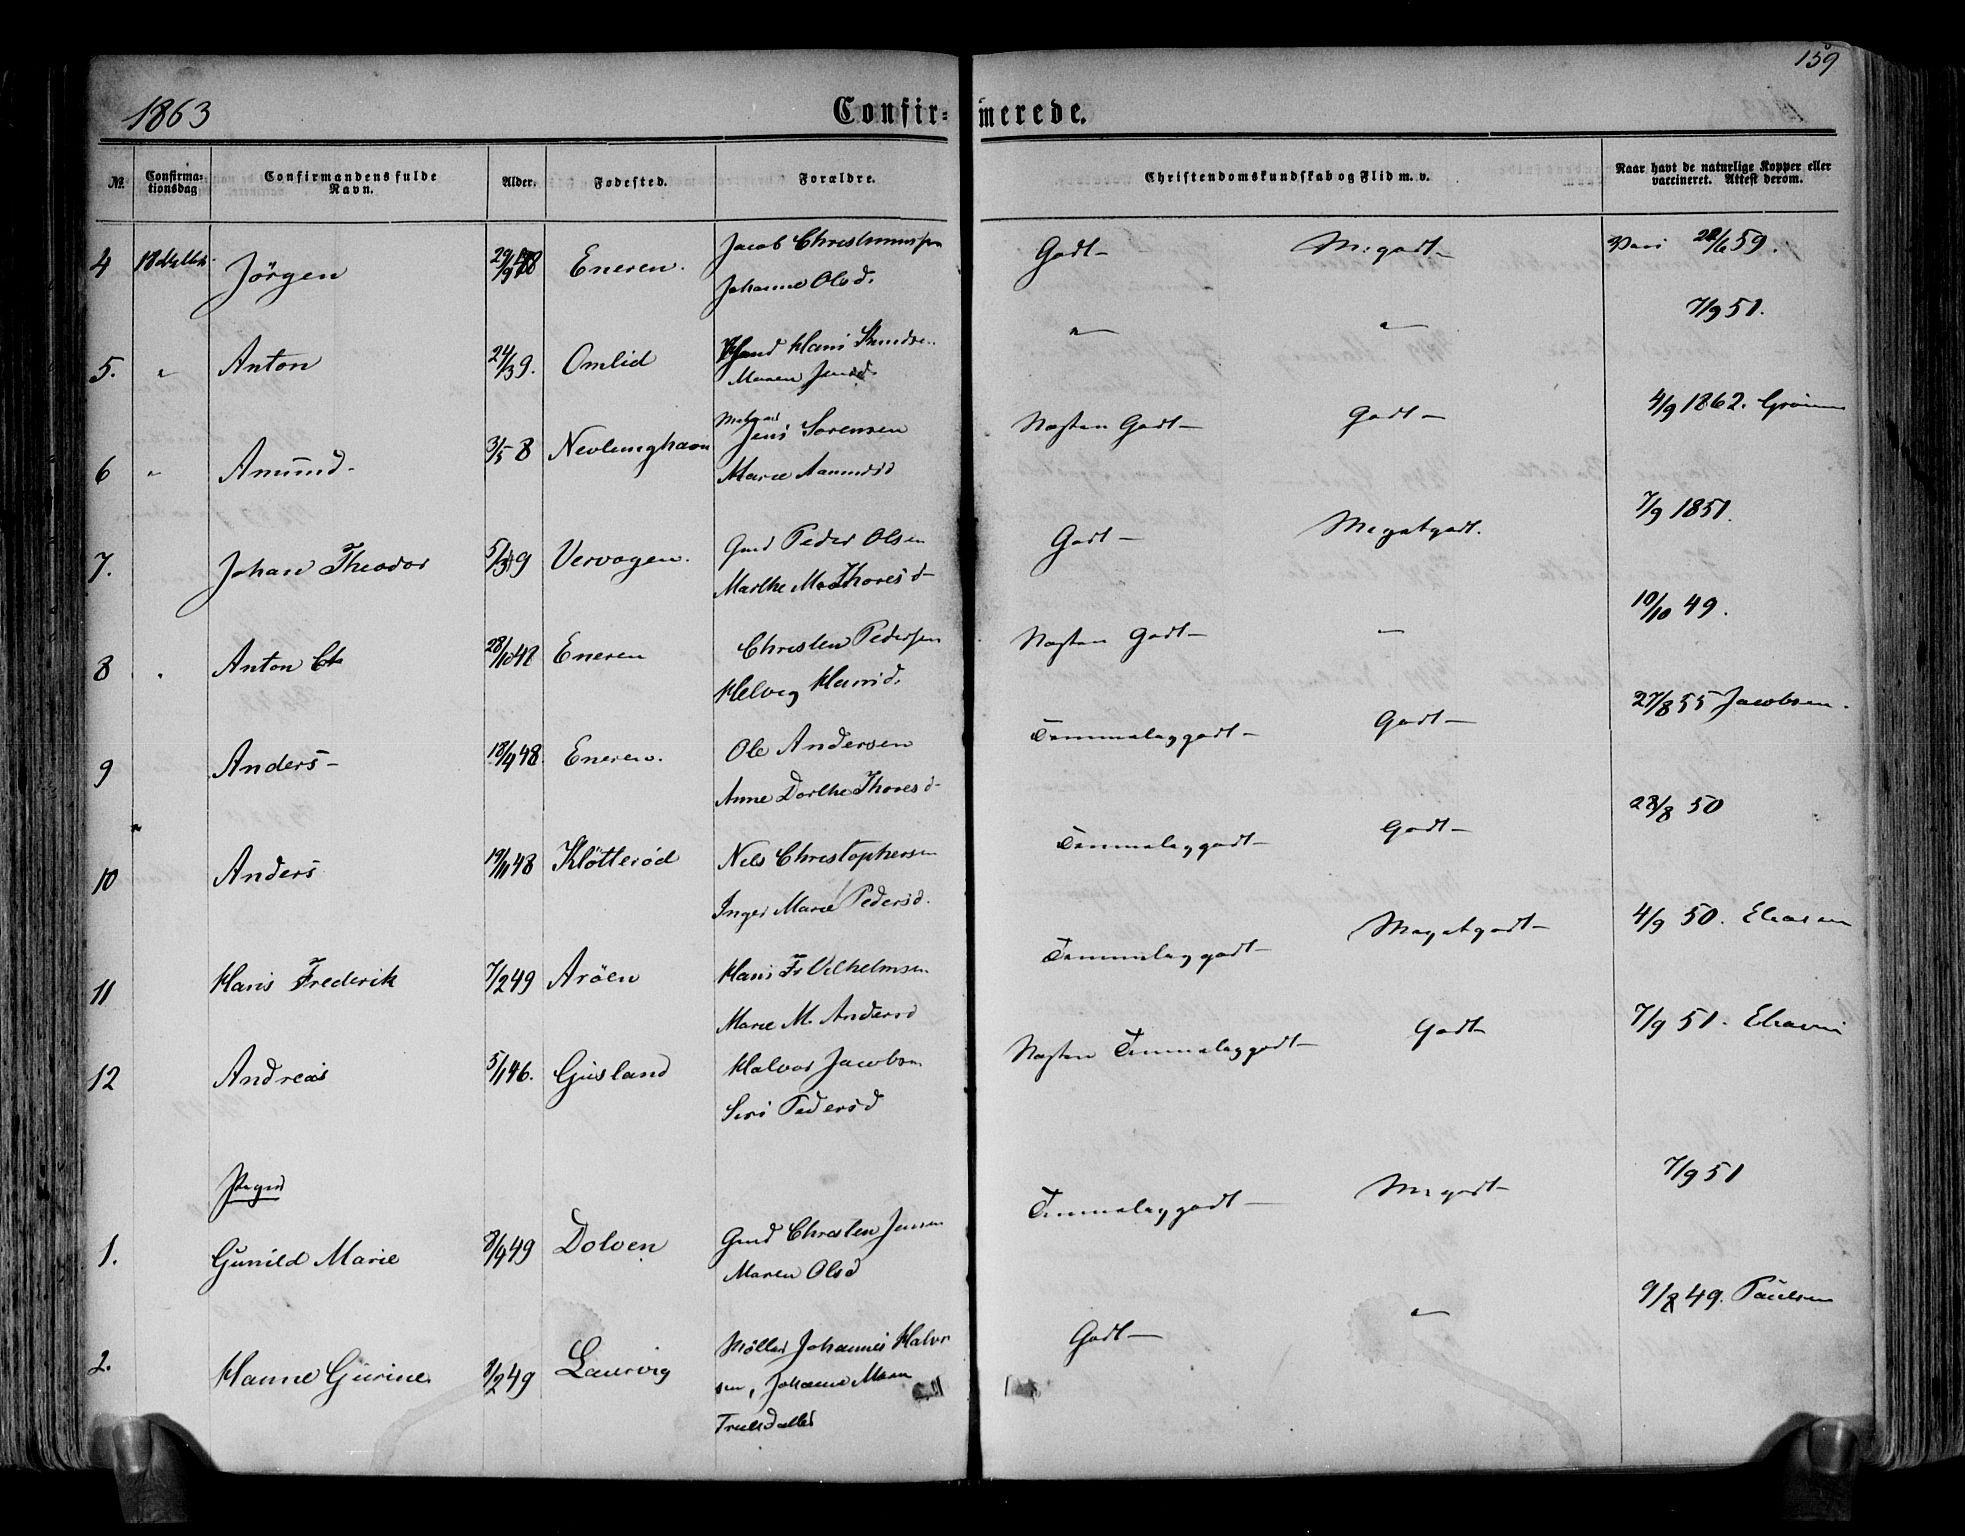 159
1863 Confir= merede.
No. Confirma-tionsdag Confirmandens fulde Navn. Alder. Fødested. Forældre. Christendomskundskab og Flid m. v. Naar havt de naturlige Kopper eller vaccineret. Attest derom.
4 Jörgen 29/9 48 Eneren. Jacob Godt M.godt 59.
Johanne Olsd.
7/9 51.
5. " Anton 24/3 9. Omlid Hans " "
Maren Jensd.
6 " Amund 3/5 8 Nevlunghavn Jens Sørensen Næsten Godt Godt 4/9 1862.
Marie Aamundsd
7. Johan Theodor 5/3 9 Vervagen. Gmd Peder Olsen Godt Megetgodt. 7/9 1851.
Marthe Thoresd
8 Anton Ch 28/10 48 Eneren Christen Pedersen Næsten Godt 10/10 49.
Helvig Hansd.
9 Anders 18/9 48. Eneren. Ole Andersen Temmeliggodt Godt 27/8 55 Jacobsen.
Anne Dorthe Thoresd
10 Anders 19/11 48 Kløtterød Nils Christophersen Temmeliggodt Godt 28/8 50
Inger Marie Pedersd.
11 Hans Frederik 7/2 49 Arøen Hans Fr Vilhelmsen Temmeliggodt Megetgodt 4/9 50. Eliasen
Marie M. Andersd
12 Andreas 5/1 46. Gusland Halvor Jacobsen Næsten Temmeliggodt Godt 7/9 51.
Siri Pedersd
Piger
1. Gunild Marie 8/9 49 Dolven Gmd Christen Jensen Temmeliggodt M godt 7/9 51
Maren Olsd
2. Hanne Gurine 8/2 49 Laurvig Møller Johannes Halvor Godt " 9/8 49. Paulsen
sen, Johanne Maren
Trulsdatter